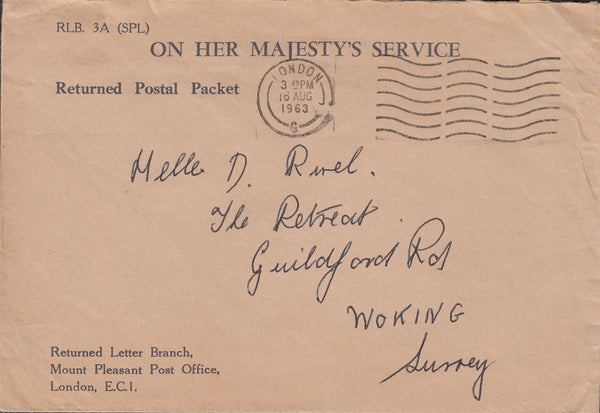 RLB. 3A (SPL)
ON HER MAJESTY'S SERVICE
Returned Postal Packet
LONDON
3 15PM
16 AUG
1963
G
Melle D. Rivel.
The Retreat.
Guildford Rd
WOKING
Surrey
Returned Letter Branch,
Mount Pleasant Post Office,
London, E.C.1.